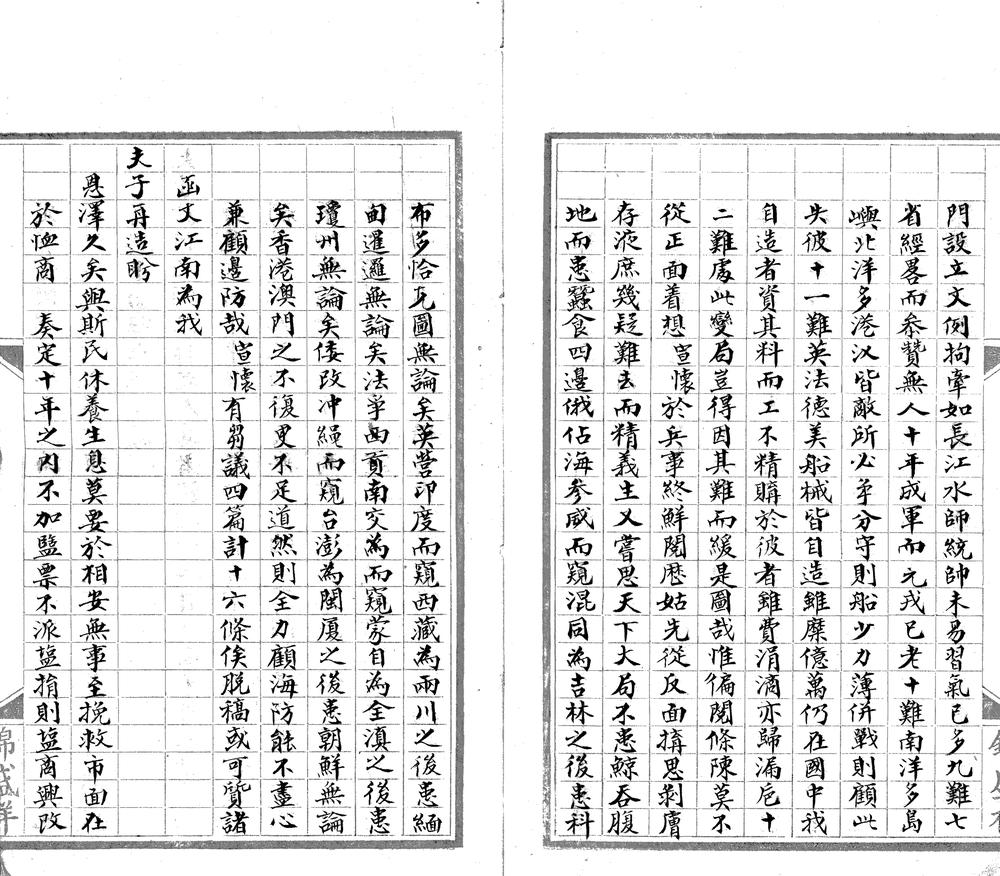 門設立文例拘牽如長江水師統帥未易習氣已多九難七
省經畧而叅贊無人十年成軍而元戎已老十難南洋多島
嶼北洋多港汊皆敵所必爭分守則船少力薄併戰則顧此
失彼十一難英法德美船械皆自造雖糜億萬仍在國中我
自造者資其料而工不精購於彼者雖費涓滴亦歸漏巵十
二難處此變局豈得因其難而緩是圖哉惟偏閱條陳莫不
從正面着想 宣懷於兵事終鮮閱歷姑先從反面揹思剝膚
存液庶幾疑難去而精義生又嘗思天下大局不患鯨吞腹
地而患蠶食四邊俄佔海參威而窺混同為吉林之後患科
布多恰克圖無論矣英營印度而窺西藏為兩川之後患緬
甸暹邏無論矣法爭西貢南交為而窺蒙自為全滇之後患
瓊州無論矣倭改冲繩而窺台澎為閩厦之後患朝鮮無論
矣香港澳門之不復更不足道然則全力顧海防能不盡心
兼顧邊防哉 宣懷有芻議四篇計十六條俟脱稿或可質諸
函丈江南為我
夫子再造盼
恩澤久矣與斯民休養生息莫要於相安無事至挽救市面在
於恤商 奏定十年之内不加鹽票不派鹽捐則鹽商興改